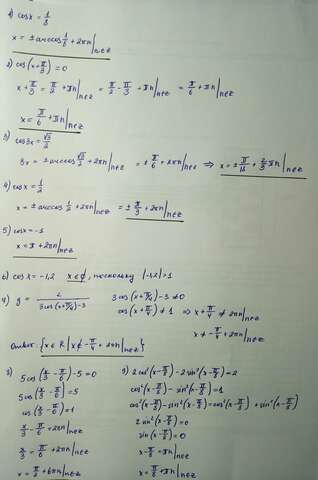 1) cos x = 1/3
x = ± arccos 1/3 + 2πn | n∈Z
2) cos(x + π/3) = 0
x + π/3 = π/2 + πn | n∈Z = π/2 - π/3 + πn | n∈Z = π/6 + πn | n∈Z
x = π/6 + πn | n∈Z
3) cos 3x = √3/2
3x = ± arccos √3/2 + 2πn | n∈Z = ± π/6 + 2πn | n∈Z ⇒ x = ± π/18 + 2/3 πn | n∈Z
4) cos x = 1/2
x = ± arccos 1/2 + 2πn | n∈Z = ± π/3 + 2πn | n∈Z
5) cos x = -1
x = π + 2πn | n∈Z
6) cos x = -1,2 x ∈ ∅, поскольку |-1,2| > 1
7) y = 2/(3cos(x + π/4) - 3) 3cos(x + π/4) - 3 ≠ 0
cos(x + π/4) ≠ 1 ⇒ x + π/4 ≠ 2πn
x ≠ -π/4 + 2πn
Ответ: {x ∈ R | x ≠ -π/4 + 2πn | n∈Z}
8)
5cos(x/3 - π/6) - 5 = 0
5cos(x/3 - π/6) = 5
cos(x/3 - π/6) = 1
x/3 - π/6 = 2πn
x/3 = π/6 + 2πn
x = π/2 + 6πn | n∈Z
9) 2cos²(x - π/8) - 2sin²(x - π/8) = 2
cos²(x - π/8) - sin²(x - π/8) = 1
cos²(x - π/8) - sin²(x - π/8) = cos²(x - π/8) + sin²(x - π/8)
2sin²(x - π/8) = 0
sin(x - π/8) = 0
x - π/8 = πn
x = π/8 + πn | n∈Z